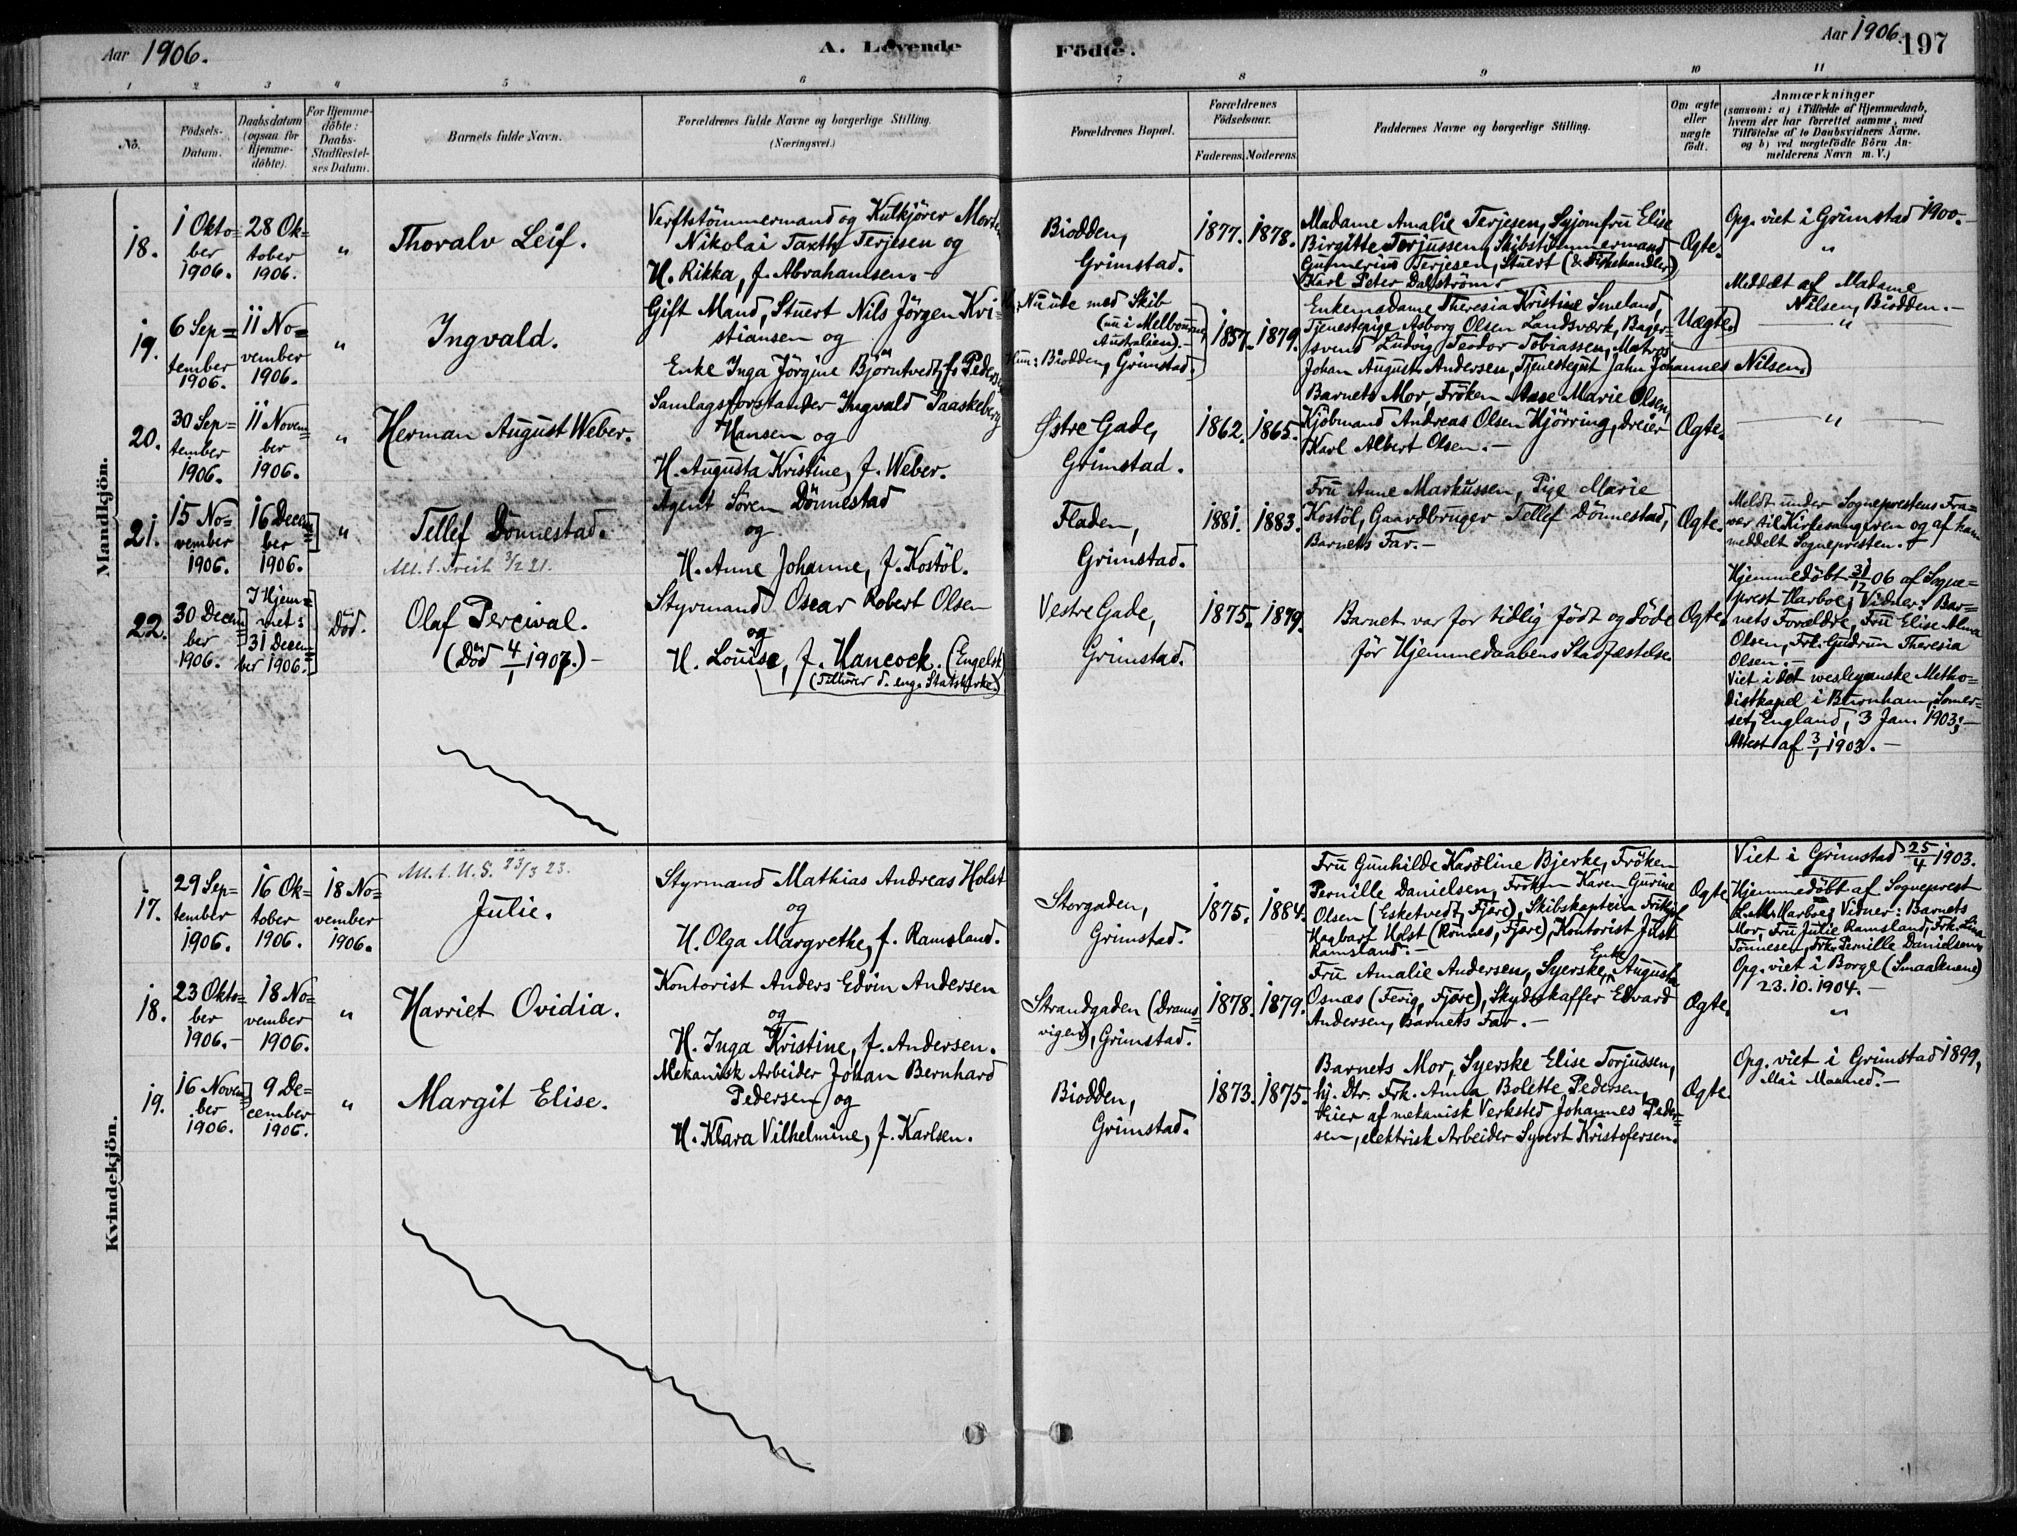 Aar 1906.
A. Levende Födte.
Aar 1906. 197
1 2 3 4 5 6 7 8 9 10 11
No.
Födsels-
Datum.
Daabsdatum
(ogsaa for
Hjemme-
döbte).
For Hjemme-
döbte:
Daabs-
Stadfæstel-
ses Datum.
Barnets fulde Navn.
Forældrenes fulde Navne og borgerlige Stilling.
(Næringsvei.)
Forældrenes Bopæl.
Forældrenes
Födselsaar.
Faderens. Moderens.
Faddernes Navne og borgerlige Stilling.
Om ægte
eller
uægte
födt.
Anmærkninger
(saasom: a) i Tilfælde af Hjemmedaab,
hvem der har forrettet samme, med
Tilföielse af to Daabsvidners Navne.
og b) ved uægtefödte Börn An-
melderens Navn m. V.)
Mandkjön.
18.
1 Okto=
ber
1906.
28 Ok=
tober
1906.
"
Thoralv Leif.
Verftstömmermand og Kulkjörer Morten
Nikolai Taxth Terjesen og
H. Rikka, f. Abrahamsen.-
Biodden,
Grimstad.
1877. 1878.
Madame Amalie Terjesen, Syjomfru Elise
Birgitte Torjussen, Skibstömmermand
Gunnerius Terjesen, Stuert (& Fiskehandler)
Karl Peter Dahlström.
Ægte.
Opg. viet i Grimstad 1900.-
"
19.
6 Sep=
tember
1906.
11 No=
vember
1906.
"
Ingvald.
Gift Mand, Stuert Nils Jörgen Kri=
stiansen og
Enke Inga Jörgine Björntvedt, f. Pedersen
Nu ute med Skib
(nu i Melbourne,
Australien).-
Hun: Biodden, Grimstad.
1857. 1879.
Enkemadame Theresia Kristine Smeland,
Tjenestepige Asborg Olsen Landsværk, Bager=
svend Ludvig Teodor Tobiassen, Matros
Johan August Andersen, Tjenestegut Jahn Johannes Nilsen.
Uægte.
Meddelt af Madame
Nilsen, Biodden.-
"
20.
30 Sep=
tember
1906.
11 Novem=
ber
1906.
"
Herman August Weber.
Samlagsforstander Ingvald Paaskeberg
Hansen og
H. Augusta Kristine, f. Weber.
Østre Gade,
Grimstad.
1862. 1865.
Barnets Mor, Fröken Anne Marie Olsen,
Kjöbmand Andreas Olsen Hjörring, Dreier
Karl Albert Olsen.-
Ægte.
"
21.
15 No=
vember
1906.
16 Decem=
ber
1906.
"
Tellef Dönnestad.
Agent Sören Dönnestad
og
H. Anne Johanne, f. Kostöl.
Fladen,
Grimstad.
1881. 1883.
Fru Anne Markussen, Pige Marie
Kostöl, Gaardbruger Tellef Dönnestad,
Barnets Far.-
Ægte.
Meldt under Sogneprestens Fra=
vær til Kirkesangeren og af ham
meddelt Sognepresten.-
22.
30 Decem=
ber
1906.
I Hjem=
met:
31 Decem=
ber 1906.
Död.
Olaf Percival.
(Död 4/1 1907.)-
Styrmand Oscar Robert Olsen
og
H. Louise, f. Hancock. (Engelsk
(Tilhörer d. eng. Statskirke.)
Vestre Gade,
Grimstad.
1875. 1879.
Barnet var for tidlig födt og döde
för Hjemmedaabens Stadfæstelse.
Ægte.
Hjemmedöbt 31/12 06 af Sogne=
prest Harboe; Vidner: Bar=
nets Forældre, Fru Elise Alma
Olsen, Frk. Gudrun Theresia
Olsen.-
Viet i det wesleyanske Metho=
distkapel i Burnham, Somer=
set, England, 3 Jan. 1903;-
Attest af 3/1 1903.-
Kvindekjön.
17.
29 Sep=
tember
1906.
16 Ok=
tober
1906.
18 No=
vember
1906.
23/3 23.
Julie.
Styrmand Mathias Andreas Holst
og
H. Olga Margrethe, f. Ramsland.
Storgaden,
Grimstad.
1875. 1884.
Fru Gunhilde Karoline Bjerke, Fröken
Pernille Danielsen, Fröken Karen Gurine
Olsen (Esketvedt, Fjære), Skibskaptein Fritjof
Hagbart Holst (Rönnes, Fjære), Kontorist Just
Ramsland.-
Ægte.
Viet i Grimstad 25/4 1903.
Hjemmedöbt af Sogneprest
L. M. Harboe; Vidner: Barnets
Mor, Fru Julie Ramsland, Frk. Lina
Tönnesen, Frk. Pernille Danielsen.
18.
23 Okto=
ber
1906.-
18 No=
vember
1906.
"
Harriet Ovidia.
Kontorist Anders Edvin Andersen
og
H. Inga Kristine, f. Andersen.
Strandgaden (Drams=
vigen), Grimstad.
1878. 1879.
Fru Amalie Andersen, Syerske, Enke Augusta
Osnæs (Fevig, Fjære), Skydsskaffer Edvard
Andersen, Barnets Far.-
Ægte.
Opg. viet i Borge (Smaalenene)
23.10.1904.-
"
19.
16 Novem=
ber
1906.
9 De=
cember
1906.
"
Margit Elise.
Mekanisk Arbeider Johan Bernhard
Pedersen og
H. Klara Vilhelmine, f. Karlsen.
Biodden,
Grimstad.
1873. 1875.
Barnets Mor, Syerske Elise Torjussen,
hj. Dtr. Frk. Anna Bolette Pedersen,
Eier af mekanisk Verksted Johannes Peder=
sen, elektrisk Arbeider Syvert Kristofersen.
Ægte.
Opg. viet i Grimstad 1899,
Mai Maaned.-